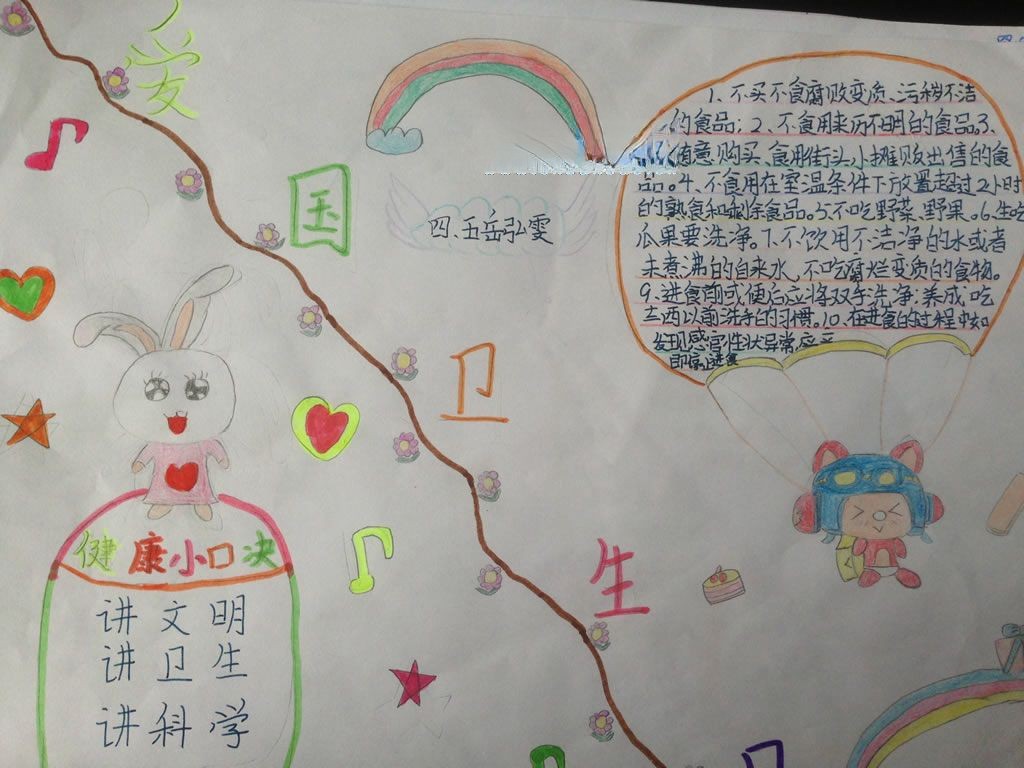 爱
国
卫
生
四、五岳弘雯
1、不买不食腐败变质、污秽不洁
的食品；2、不食用来历不明的食品。3、
随意购买、食用街头小摊贩出售的食
品。4、不食用在室温条件下放置超过2小时
的熟食和剩余食品。5、不吃野菜、野果。6、生吃
瓜果要洗净。7、不饮用不洁净的水或者
未煮沸的自来水，不吃腐烂变质的食物。
9、进食前或便后应将双手洗净；养成，吃
东西以前洗手的习惯。10、在进食的过程中如
发现感官性状异常应立
即停止进食
健康小口决
讲文明
讲卫生
讲科学